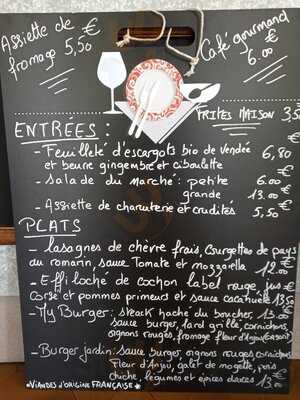 Assiette de
fromage 5,50 €
Café gourmand
6.00 €
FRITES MAISON 3,50
ENTRÉES :
- Feuilleté d'escargots bio de Vendée
et beurre gingembre et ciboulette 6,80 €
- Salade du Marché : petite 6.00 €
grande 13.00 €
- Assiette de charcuterie et crudités 5,50 €
PLATS
- lasagnes de chèvre frais, courgettes de pays
au romarin, sauce Tomate et mozzarella 12.00 €
- Effiloché de cochon label rouge, jus
corsé et pommes primeurs et sauce cacahuète 13,50 €
- My Burger : steak haché du boucher, 13.00 €
sauce burger, lard grillé, cornichons,
oignons rouges, fromage fleur d'Anjou
- Burger jardin : sauce burger, oignons rouges, cornichons
Fleur d'Anjou, galet de mogette, pois
chiche, légumes et épices douces 13.00 €
*VIANDES D'ORIGINE FRANÇAISE*